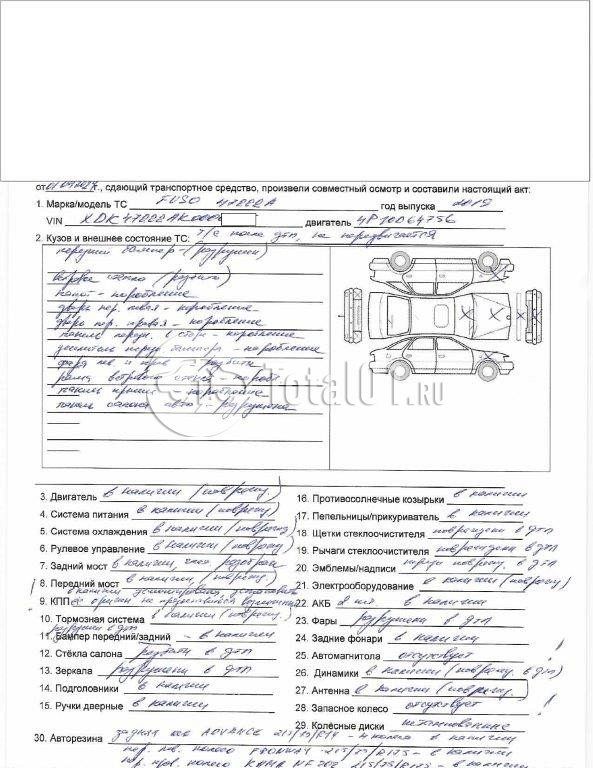 от 01.04.2024г., сдающий транспортное средство, произвели совместный осмотр и составили настоящий акт:
1. Марка/модель ТС FUSO 47022A год выпуска 2019
VIN XDK47022AK000 двигатель 4P10D64756
2. Кузов и внешнее состояние ТС: т/с после дтп, не передвигается
передний бампер - (разрушен)
лобовое стекло (разбито)
капот - коробление
дверь пер. левая - коробление
дверь пер. правая - коробление
панель перед. в сборе - коробление
усилитель перед бампера - коробление
фара лев и прав - разбиты
рама ветрового стекла - коробл
панель крыши - коробление
панель авто - разрушена
Total01.RU
3. Двигатель в наличии (поврежд.)
4. Система питания в наличии (поврежд)
5. Система охлаждения в наличии (поврежд)
6. Рулевое управление в наличии (поврежд)
7. Задний мост в наличии, разобран
8. Передний мост в наличии, (поврежд.)
в наличии установить
9. КПП не представляется возможным
10. Тормозная система в наличии (поврежд)
разрушен в дтп
11. Бампер передний/задний - в наличии
12. Стёкла салона разбиты в дтп
13. Зеркала разрушены в дтп
14. Подголовники в наличии
15. Ручки дверные в наличии
16. Противосолнечные козырьки в наличии
17. Пепельницы/прикуриватель в наличии
18. Щетки стеклоочистителя повреждены в дтп
19. Рычаги стеклоочистителя повреждены в дтп
20. Эмблемы/надписи поврежд. в дтп
21. Электрооборудование в наличии (поврежд)
22. АКБ 2 шт в наличии
23. Фары разрушены в дтп
24. Задние фонари в наличии
25. Автомагнитола отсутствует
26. Динамики в наличии (поврежд. в дтп)
27. Антенна в наличии (поврежд.
28. Запасное колесо отсутствует
29. Колёсные диски штампованные
30. Авторезина задняя ось ADVANCE 215/75/R17 - 4 колеса в наличии
пер. лев. колесо 215/75/R17,5 - в наличии
пер. прав. колесо КАМА NF 202 215/75/R17,5 - в наличии